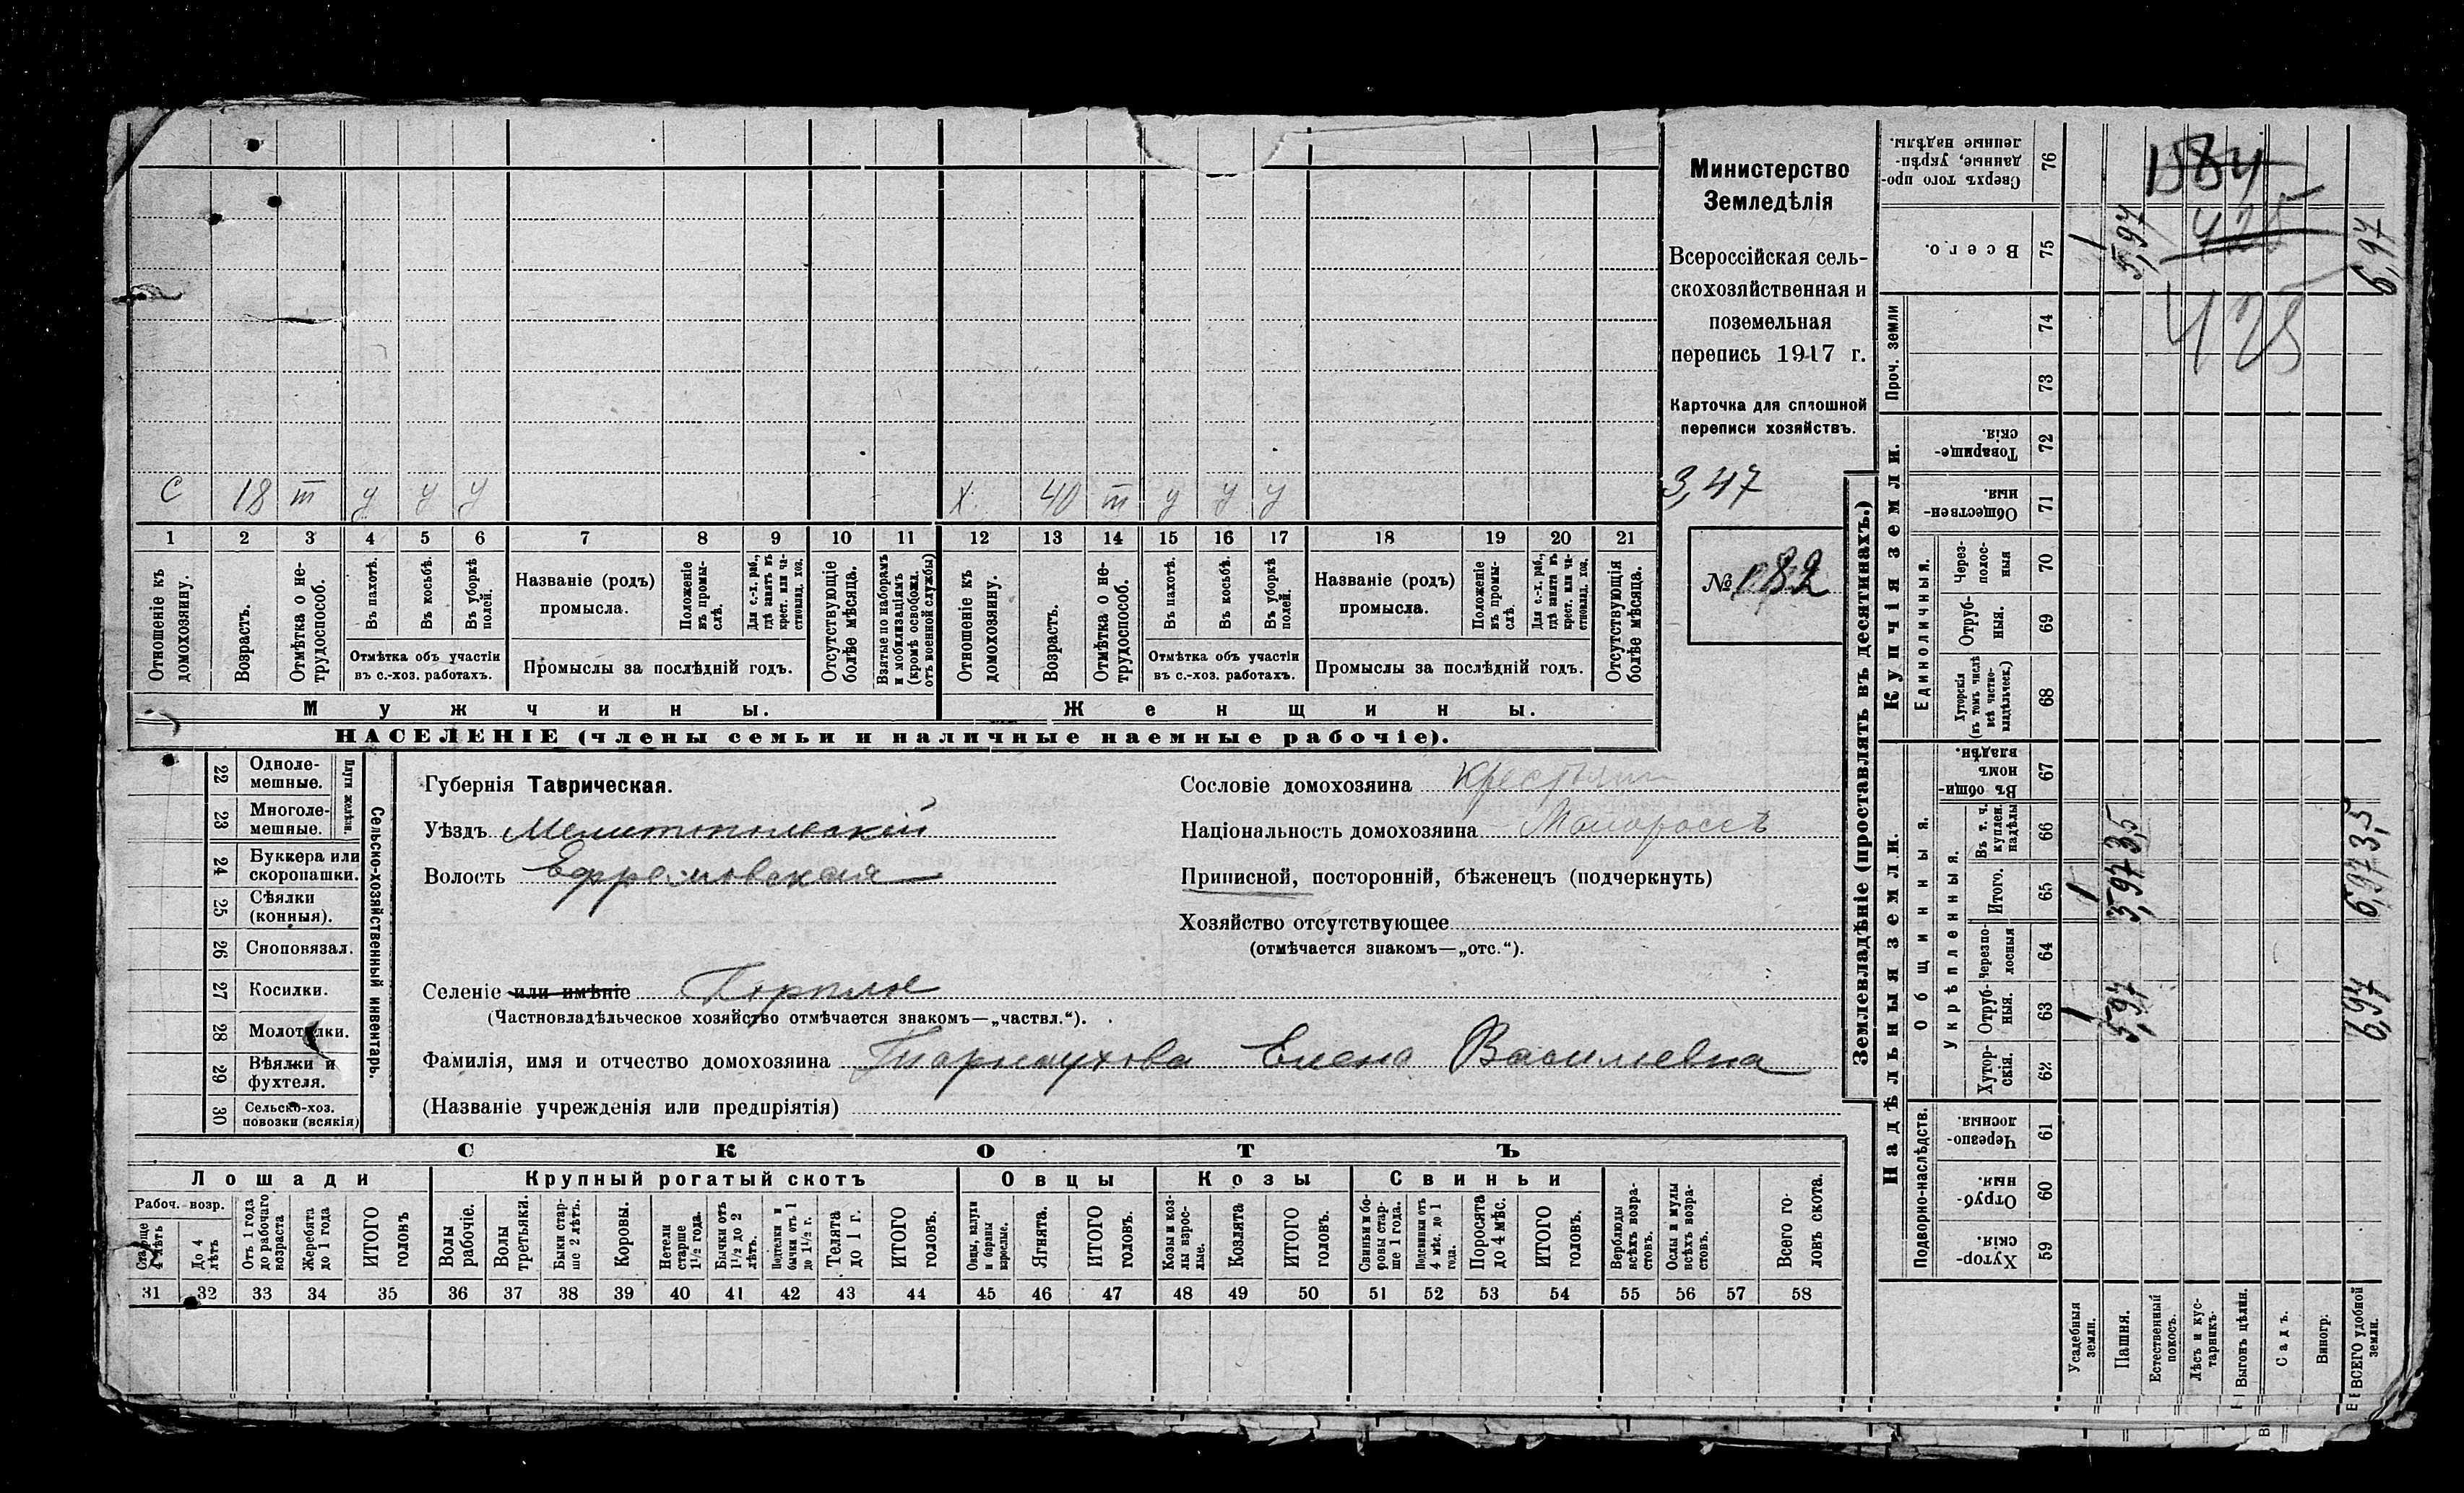 Министерство
Земледѣлія
Всероссійская сель-
скохозяйственная и
поземельная
перепись 1917 г.
Карточка для сплошной
переписи хозяйствъ.
3,47
№ 182
С 18 т у у у
Х. 40 т у у у
1 2 3 4 5 6 7 8 9 10 11 12 13 14 15 16 17 18 19 20 21
Отношеніе къ домохозяину.
Возрастъ.
Отмѣтка о не-трудоспособ.
Въ пахотѣ.
Въ косьбѣ.
Въ уборкѣ полей.
Отмѣтка объ участіи
въ с.-хоз. работахъ.
Названіе (родъ)
промысла.
Положеніе въ промы-слѣ.
Для с.-х. раб., гдѣ занятъ въ крест. или ча-стновлад. хоз.
Промыслы за послѣдній годъ.
Отсутствующіе болѣе мѣсяца.
Взятые по наборамъ и мобилизаціямъ (кромѣ освобожд. отъ военной службы)
Отношеніе къ домохозяину.
Возрастъ.
Отмѣтка о не-трудоспособ.
Въ пахотѣ.
Въ косьбѣ.
Въ уборкѣ полей.
Отмѣтка объ участіи
въ с.-хоз. работахъ.
Названіе (родъ)
промысла.
Положеніе въ промы-слѣ.
Для с.-х. раб., гдѣ занята въ крест. или ча-стновлад. хоз.
Промыслы за послѣдній годъ.
Отсутствующія болѣе мѣсяца.
Мужчины.
Женщины.
НАСЕЛЕНІЕ (члены семьи и наличные наемные рабочіе).
22 Одноле-мешные.
23 Многоле-мешные.
Плуги желѣзн.
24 Буккера или скоропашки.
25 Сѣялки (конныя).
26 Сноповязал.
27 Косилки.
28 Молотилки.
29 Вѣялки и фухтеля.
30 Сельско-хоз. повозки (всякія)
Сельско-хозяйственный инвентарь.
Губернія Таврическая.
Уѣздъ Мелитопольскій
Волость Ефремовская
Сословіе домохозяина Крестьянин
Національность домохозяина Малороссъ
Приписной, посторонній, бѣженецъ (подчеркнуть)
Хозяйство отсутствующее
(отмѣчается знакомъ—„отс.“).
Селеніе или имѣніе
(Частновладѣльческое хозяйство отмѣчается знакомъ—„частвл.“).
Фамилія, имя и отчество домохозяина Тарнаухова Елена Васильевна
(Названіе учрежденія или предпріятія)
СКОТЪ
Лошади
Крупный рогатый скотъ
Овцы
Козы
Свиньи
Рабоч. возр.
Старше 4 лѣтъ
До 4 лѣтъ
Отъ 1 года до рабочаго возраста
Жеребята до 1 года
ИТОГО головъ
Волы рабочіе.
Волы третьяки.
Быки стар-ше 2 лѣтъ.
Коровы.
Нетели старше 1½ года.
Бычки отъ 1½ до 2 лѣтъ.
Подтелки и бычки отъ 1 до 1½ г.
Телята до 1 г.
ИТОГО головъ.
Овцы, валухи и бараны взрослые.
Ягнята.
ИТОГО головъ.
Козы и коз-лы взрос-лые.
Козлята
ИТОГО головъ.
Свиньи и бо-ровы стар-ше 1 года.
Подсвинки отъ 4 мѣс. до 1 года.
Поросята до 4 мѣс.
ИТОГО головъ.
Верблюды всѣхъ возра-стовъ.
Ослы и мулы всѣхъ возра-стовъ.
Всего го-ловъ скота.
31 32 33 34 35 36 37 38 39 40 41 42 43 44 45 46 47 48 49 50 51 52 53 54 55 56 57 58
Землевладѣніе (проставлять въ десятинахъ.)
Надѣльныя земли.
Купчія земли.
Проч. земли
Подворно-наслѣдств.
Общинныя.
Укрѣпленныя.
Единоличныя.
76 Сверхъ того про-данные, укрѣп-ленные надѣлы.
75 Всего. 1 5,97 6,97
74
73
72 Товарище-скія.
71 Обществен-ныя.
70 Через-полос-ныя
69 Отруб-ныя.
68 Хуторскія (въ томъ числѣ всѣ частно-владѣльческ.)
67 Въ общи-номъ владѣн.
66 Въ т. ч. куплен. надѣлы 3,5 3,5
65 Итого. 1 5,97 6,97
64 Черезпо-лосныя
63 Отруб-ныя. 1 5,97 6,97
62 Хутор-скія.
61 Черезпо-лосныя.
60 Отруб-ныя.
59 Хутор-скія.
Усадебныя земли.
Пашня.
Естественный покосъ.
Лѣсъ и кус-тарникъ.
Выгонъ цѣлин.
Садъ.
Виногр.
ВСЕГО удобной земли.
1584
425
425